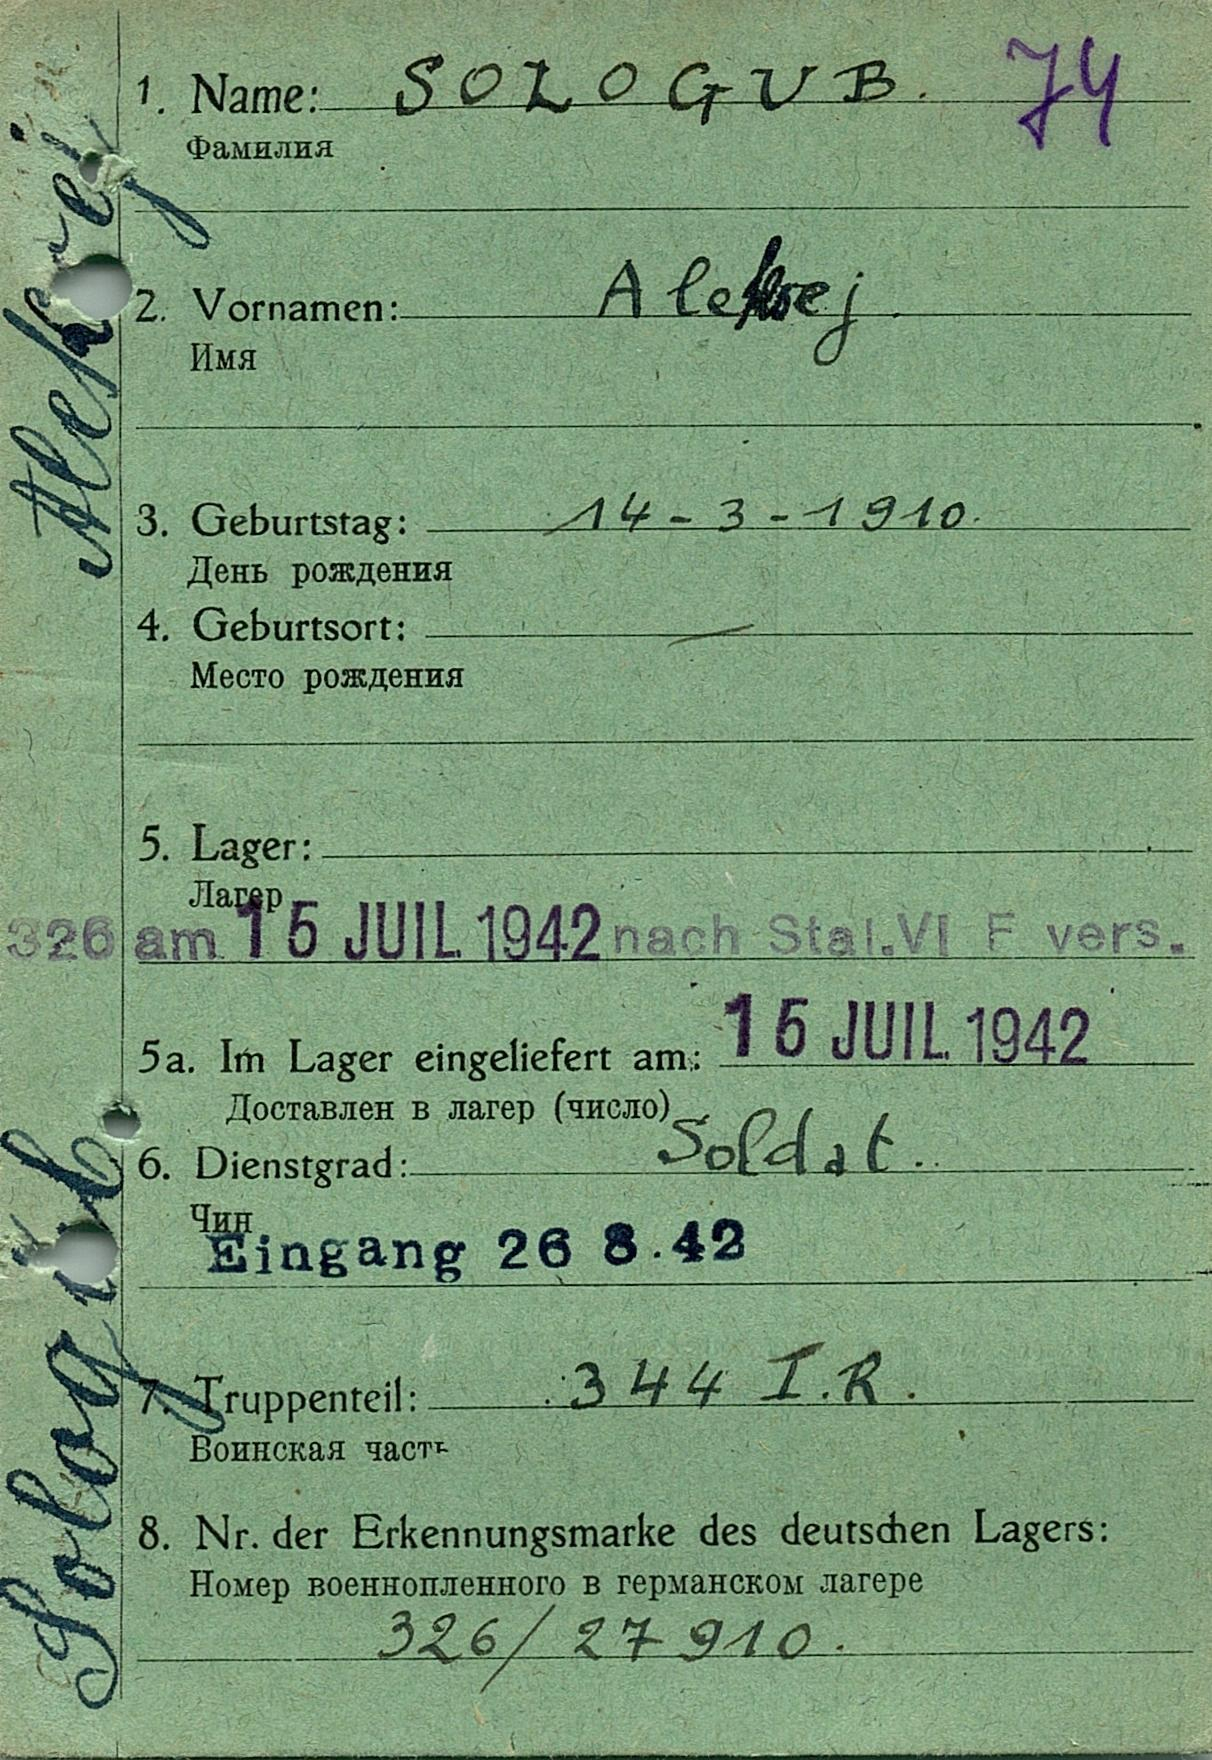 1. Name: SOLOGUB. 74
Фамилия
2. Vornamen: Aleksej
Имя
3. Geburtstag: 14-3-1910.
День рождения
4. Geburtsort: —
Место рождения
5. Lager:
Лагер
326 am 15 JUIL 1942 nach Stal.VI F vers.
5a. Im Lager eingeliefert am: 15 JUIL 1942
Доставлен в лагер (число)
6. Dienstgrad: Soldat.
Чин
Eingang 26 8.42
7. Truppenteil: 344 I.R.
Воинская часть
8. Nr. der Erkennungsmarke des deutschen Lagers:
Номер военнопленного в германском лагере
326/27910.
Sologub Aleksej